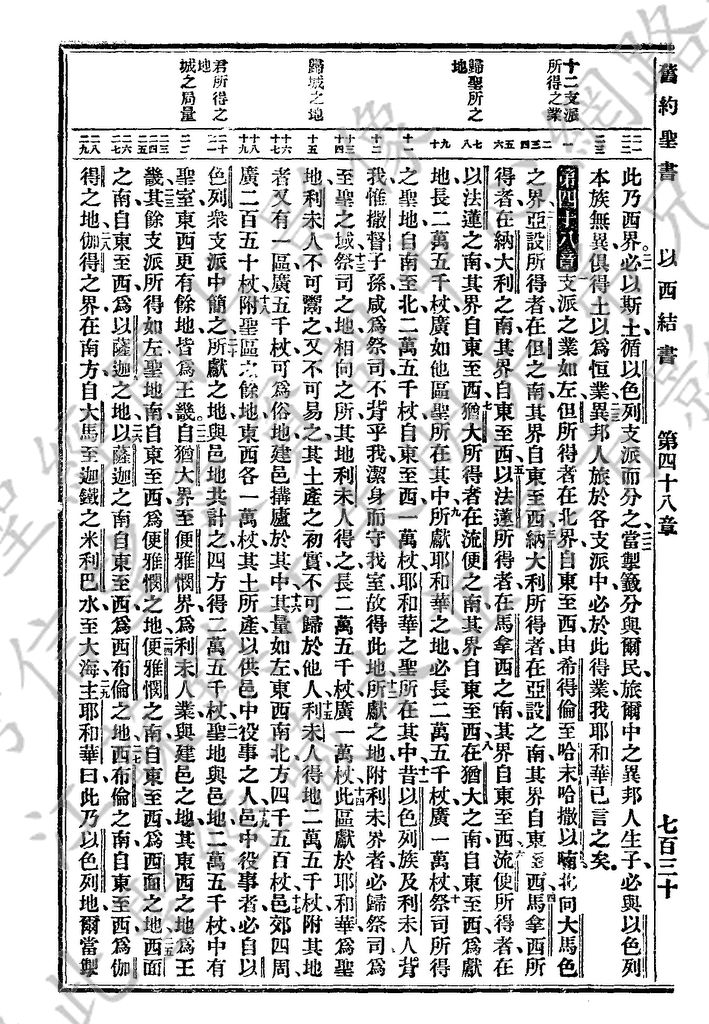 舊約聖書 以西結書 第四十八章 七百三十
十二支派所得之業
歸聖所之地
歸城之地
君所得之地
城之局量
此乃西界必以斯土循以色列支派而分之當掣籤分與爾民旅爾中之異邦人生子必與以色列
本族無異俱得土以為恒業異邦人旅於各支派中必於此得業我耶和華已言之矣
第四十八章支派之業如左但所得者在北界自東至西由希得倫至哈末哈撒以喃北向大馬色
之界亞設所得者在但之南其界自東至西納大利所得者在亞設之南其界自東至西馬拿西所
得者在納大利之南其界自東至西以法蓮所得者在馬拿西之南其界自東至西流便所得者在
以法蓮之南其界自東至西猶大所得者在流便之南其界自東至西在猶大之南自東至西為獻
地長二萬五千杖廣如他區聖所在其中所獻耶和華之地必長二萬五千杖廣一萬杖祭司所得
之聖地自南至北二萬五千杖自東至西一萬杖耶和華之聖所在其中昔以色列族及利未人背
我惟撒督子孫咸為祭司不背乎我潔身而守我室故得此地所獻之地附利未界者必歸祭司為
至聖之域祭司之地相向之所其地利未人得之長二萬五千杖廣一萬杖此區獻於耶和華為聖
地利未人不可鬻之又不可易之其土產之初實不可歸於他人利未人得地二萬五千杖附其地
者又有一區廣五千杖可為俗地建邑搆廬於其中其量如左東西南北方四千五百杖邑郊四周
廣二百五十杖附聖區之餘地東西各一萬杖其土所產以供邑中役事之人邑中役事者必自以
色列衆支派中簡之所獻之地與邑地共計之四方得二萬五千杖聖地與邑地二萬五千杖中有
聖室東西更有餘地皆為王畿自猶大界至便雅憫界為利未人業與建邑之地其東西之地為王
畿其餘支派所得如左聖地南自東至西為便雅憫之地便雅憫之南自東至西為西面之地西面
之南自東至西為以薩迦之地以薩迦之南自東至西為西布倫之地西布倫之南自東至西為伽
得之地伽得之界在南方自大馬至迦鐵之米利巴水至大海主耶和華曰此乃以色列地爾當掣